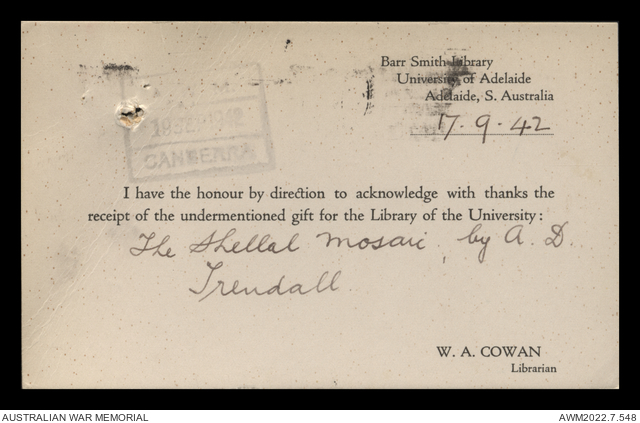 Barr Smith Library
University of Adelaide
Adelaide, S. Australia
17.9.42
CANBERRA
I have the honour by direction to acknowledge with thanks the
receipt of the undermentioned gift for the Library of the University:
The Shellal Mosaic, by A. D.
Trendall
W. A. COWAN
Librarian
AUSTRALIAN WAR MEMORIAL
AWM2022.7.548